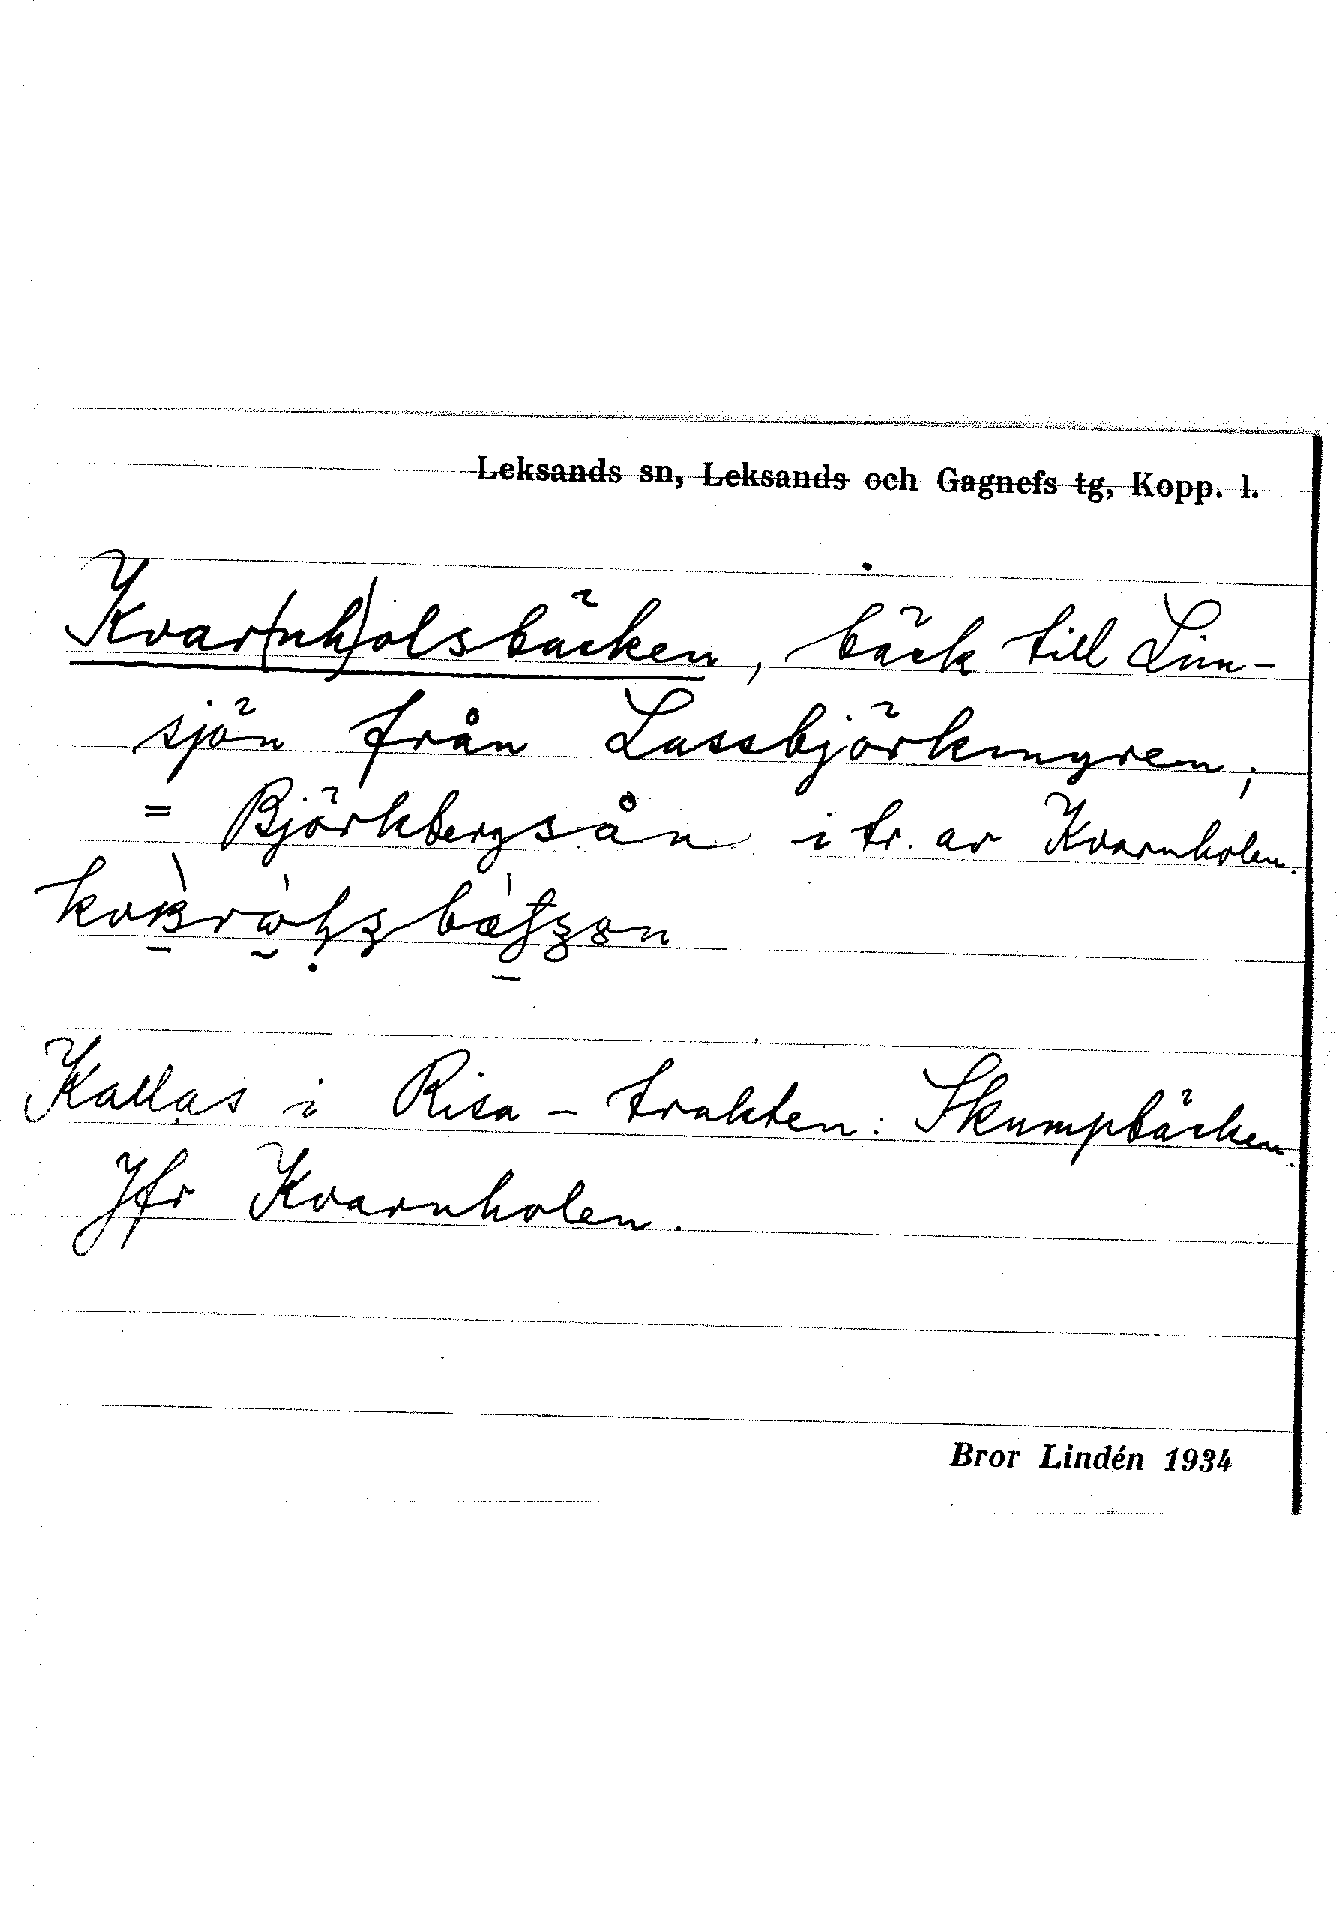 Leksands sn, Leksands och Gagnefs tg, Kopp. l.
Kvar(nh)olsbäcken, bäck till Lim-
sjön från Lassbjörkmyren;
= Björkbergsån i tr. av Kvarnholen.
Kallas i Risa-trakten: Skumpbäcken.
Jfr Kvarnholen.
Bror Lindén 1934